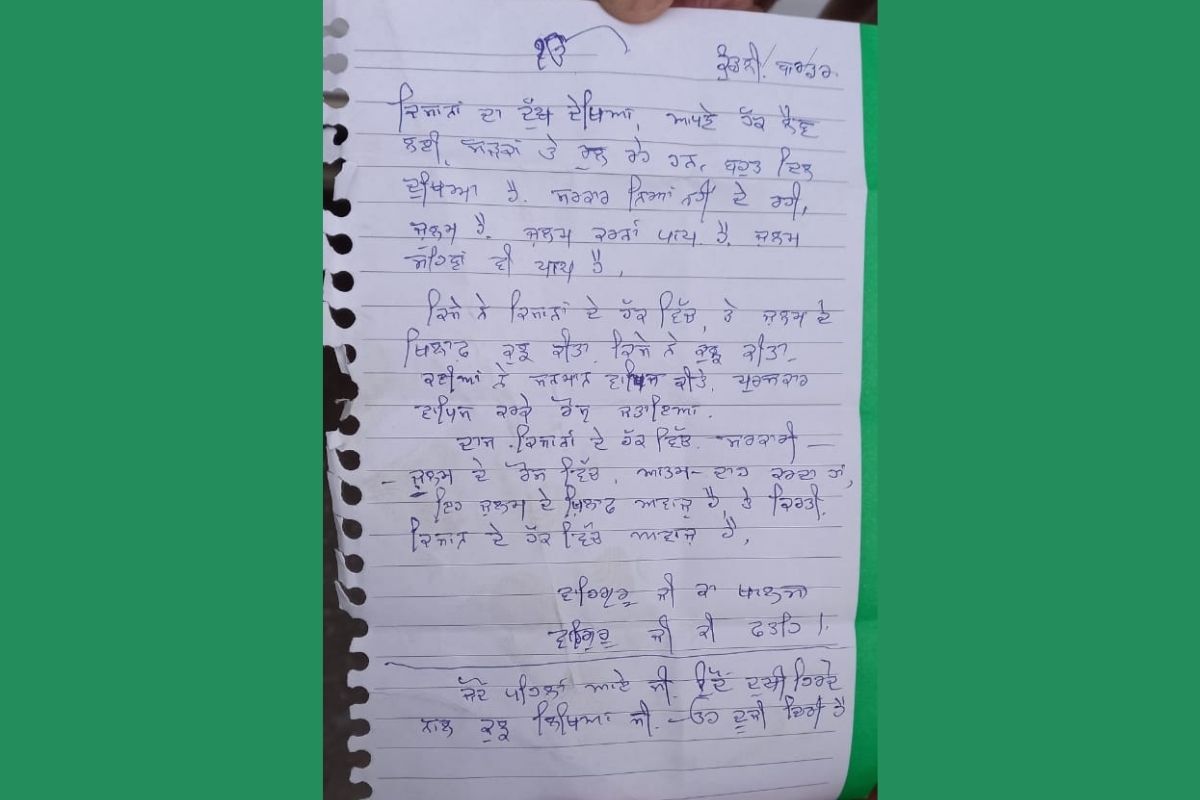 ੴ
ਕੁੰਡਲੀ ਬਾਰਡਰ
ਕਿਸਾਨਾਂ ਦਾ ਦੁੱਖ ਦੇਖਿਆ, ਆਪਣੇ ਹੱਕ ਲੈਣ
ਲਈ, ਸੜਕਾਂ ਤੇ ਰੁਲ ਰਹੇ ਹਨ, ਬਹੁਤ ਦਿਲ
ਦੁਖਿਆ ਹੈ. ਸਰਕਾਰ ਨਿਆਂ ਨਹੀਂ ਦੇ ਰਹੀ,
ਜ਼ੁਲਮ ਹੈ. ਜ਼ੁਲਮ ਕਰਨਾ ਪਾਪ ਹੈ. ਜ਼ੁਲਮ
ਸਹਿਣਾ ਵੀ ਪਾਪ ਹੈ,
ਕਿਸੇ ਨੇ ਕਿਸਾਨਾਂ ਦੇ ਹੱਕ ਵਿੱਚ, ਤੇ ਜ਼ੁਲਮ ਦੇ
ਖਿਲਾਫ ਕੁਝ ਕੀਤਾ, ਕਿਸੇ ਨੇ ਕੁਝ ਕੀਤਾ
ਕਈਆਂ ਨੇ ਸਨਮਾਨ ਵਾਪਿਸ ਕੀਤੇ, ਪੁਰਸਕਾਰ
ਵਾਪਿਸ ਕਰਕੇ ਰੋਸ ਜਤਾਇਆ.
ਦਾਸ ਕਿਸਾਨਾਂ ਦੇ ਹੱਕ ਵਿੱਚ. ਸਰਕਾਰੀ —
- ਜ਼ੁਲਮ ਦੇ ਰੋਸ ਵਿੱਚ, ਆਤਮ-ਦਾਹ ਕਰਦਾ ਹਾਂ,
ਇਹ ਜ਼ੁਲਮ ਦੇ ਖ਼ਿਲਾਫ ਆਵਾਜ਼ ਹੈ, ਤੇ ਕਿਰਤੀ
ਕਿਸਾਨ ਦੇ ਹੱਕ ਵਿੱਚ ਆਵਾਜ਼ ਹੈ,
ਵਾਹਿਗੁਰੂ ਜੀ ਕਾ ਖਾਲਸਾ
ਵਾਹਿਗੁਰੂ ਜੀ ਕੀ ਫਤਹਿ।
ਪਹਿਲਾਂ ਆਏ ਸੀ. ਦੁਖੀ ਹਿਰਦੇ
ਨਾਲ ਕੁਝ ਲਿਖਿਆ ਸੀ. - ਉਹ ਦੂਜੀ ਹੈ